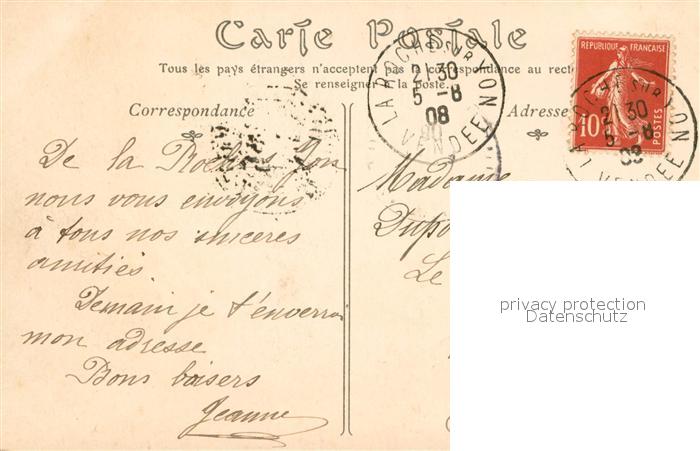 Carte Postale
Tous les pays étrangers n'acceptent pas la correspondance au recto
Se renseigner à la poste.
Correspondance
Adresse
De la Roche s Yon
nous vous envoyons
à tous nos sinceres
amitiés.
Demain je t'enverrai
mon adresse
Bons baisers
Jeanne
Madame
Dupo
Le
LA ROCHE SUR YON
21 30
5 -8
08
VENDÉE
REPUBLIQUE FRANÇAISE
10
POSTES
LA ROCHE SUR YON
21 30
5 -8
08
VENDÉE
privacy protection
Datenschutz